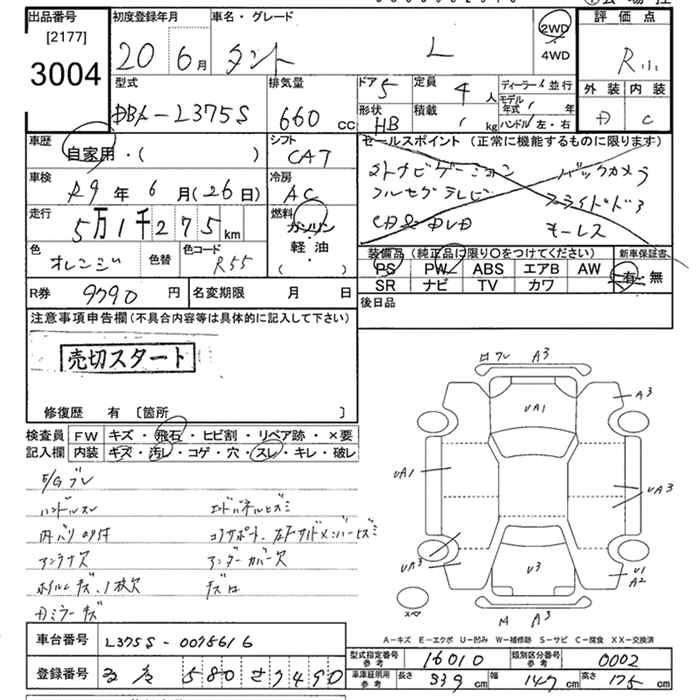 出品番号
[2177]
3004
初度登録年月
20 6月
車名・グレード
タント L
2WD
4WD
評価点
R
外装 内装
D C
型式
DBA-L375S
排気量
660 CC
ドア 5
定員 4人
形状 HB
積載 kg
ディーラー・並行
モデル年式 年
ハンドル/左・右
車歴
自家用・( )
シフト
CAT
セールスポイント (正常に機能するものに限ります)
ストナビゲーション バックカメラ
フルセグテレビ スライドドア
CD&DVD キーレス
車検
R9年 6月(26日)
冷房
AC
走行
5万1千275km
燃料
ガソリン
軽・油
( )
色
オレンジ
色替
色コード
R55
装備品 (純正品に限り○をつけてください)
PS PW ABS エアB AW
SR ナビ TV カワ
新車保証書
有・無
R券 9790円
名変期限 月 日
後日品
注意事項申告欄(不具合内容等は具体的に記入して下さい)
売切スタート
修復歴 有 〔箇所 〕
検査員 FW キズ・飛石・ヒビ割・リペア跡・×要
記入欄 内装 キズ・汚レ・コゲ・穴・スレ・キレ・破レ
E/Gブレ
ハンドルスレ
エンドパネルヒズミ
内バリ
コアサポート、
アンテナ欠
アンダーカバー欠
ホイルキズ、1枚欠
Dミラーキズ
A3
A3
UA1
UA1
UA3
UA3
U3
U1
A2
スペ
A3
A－キズ E－エクボ U－凹み W－補修跡 S－サビ C－腐食 XX－交換済
車台番号 L375S-0078616
登録番号 580 さ 7490
型式指定番号 参考 16010
類別区分番号 参考 0002
車庫証明用 参考 長さ 339cm 幅 147cm 高さ 175cm